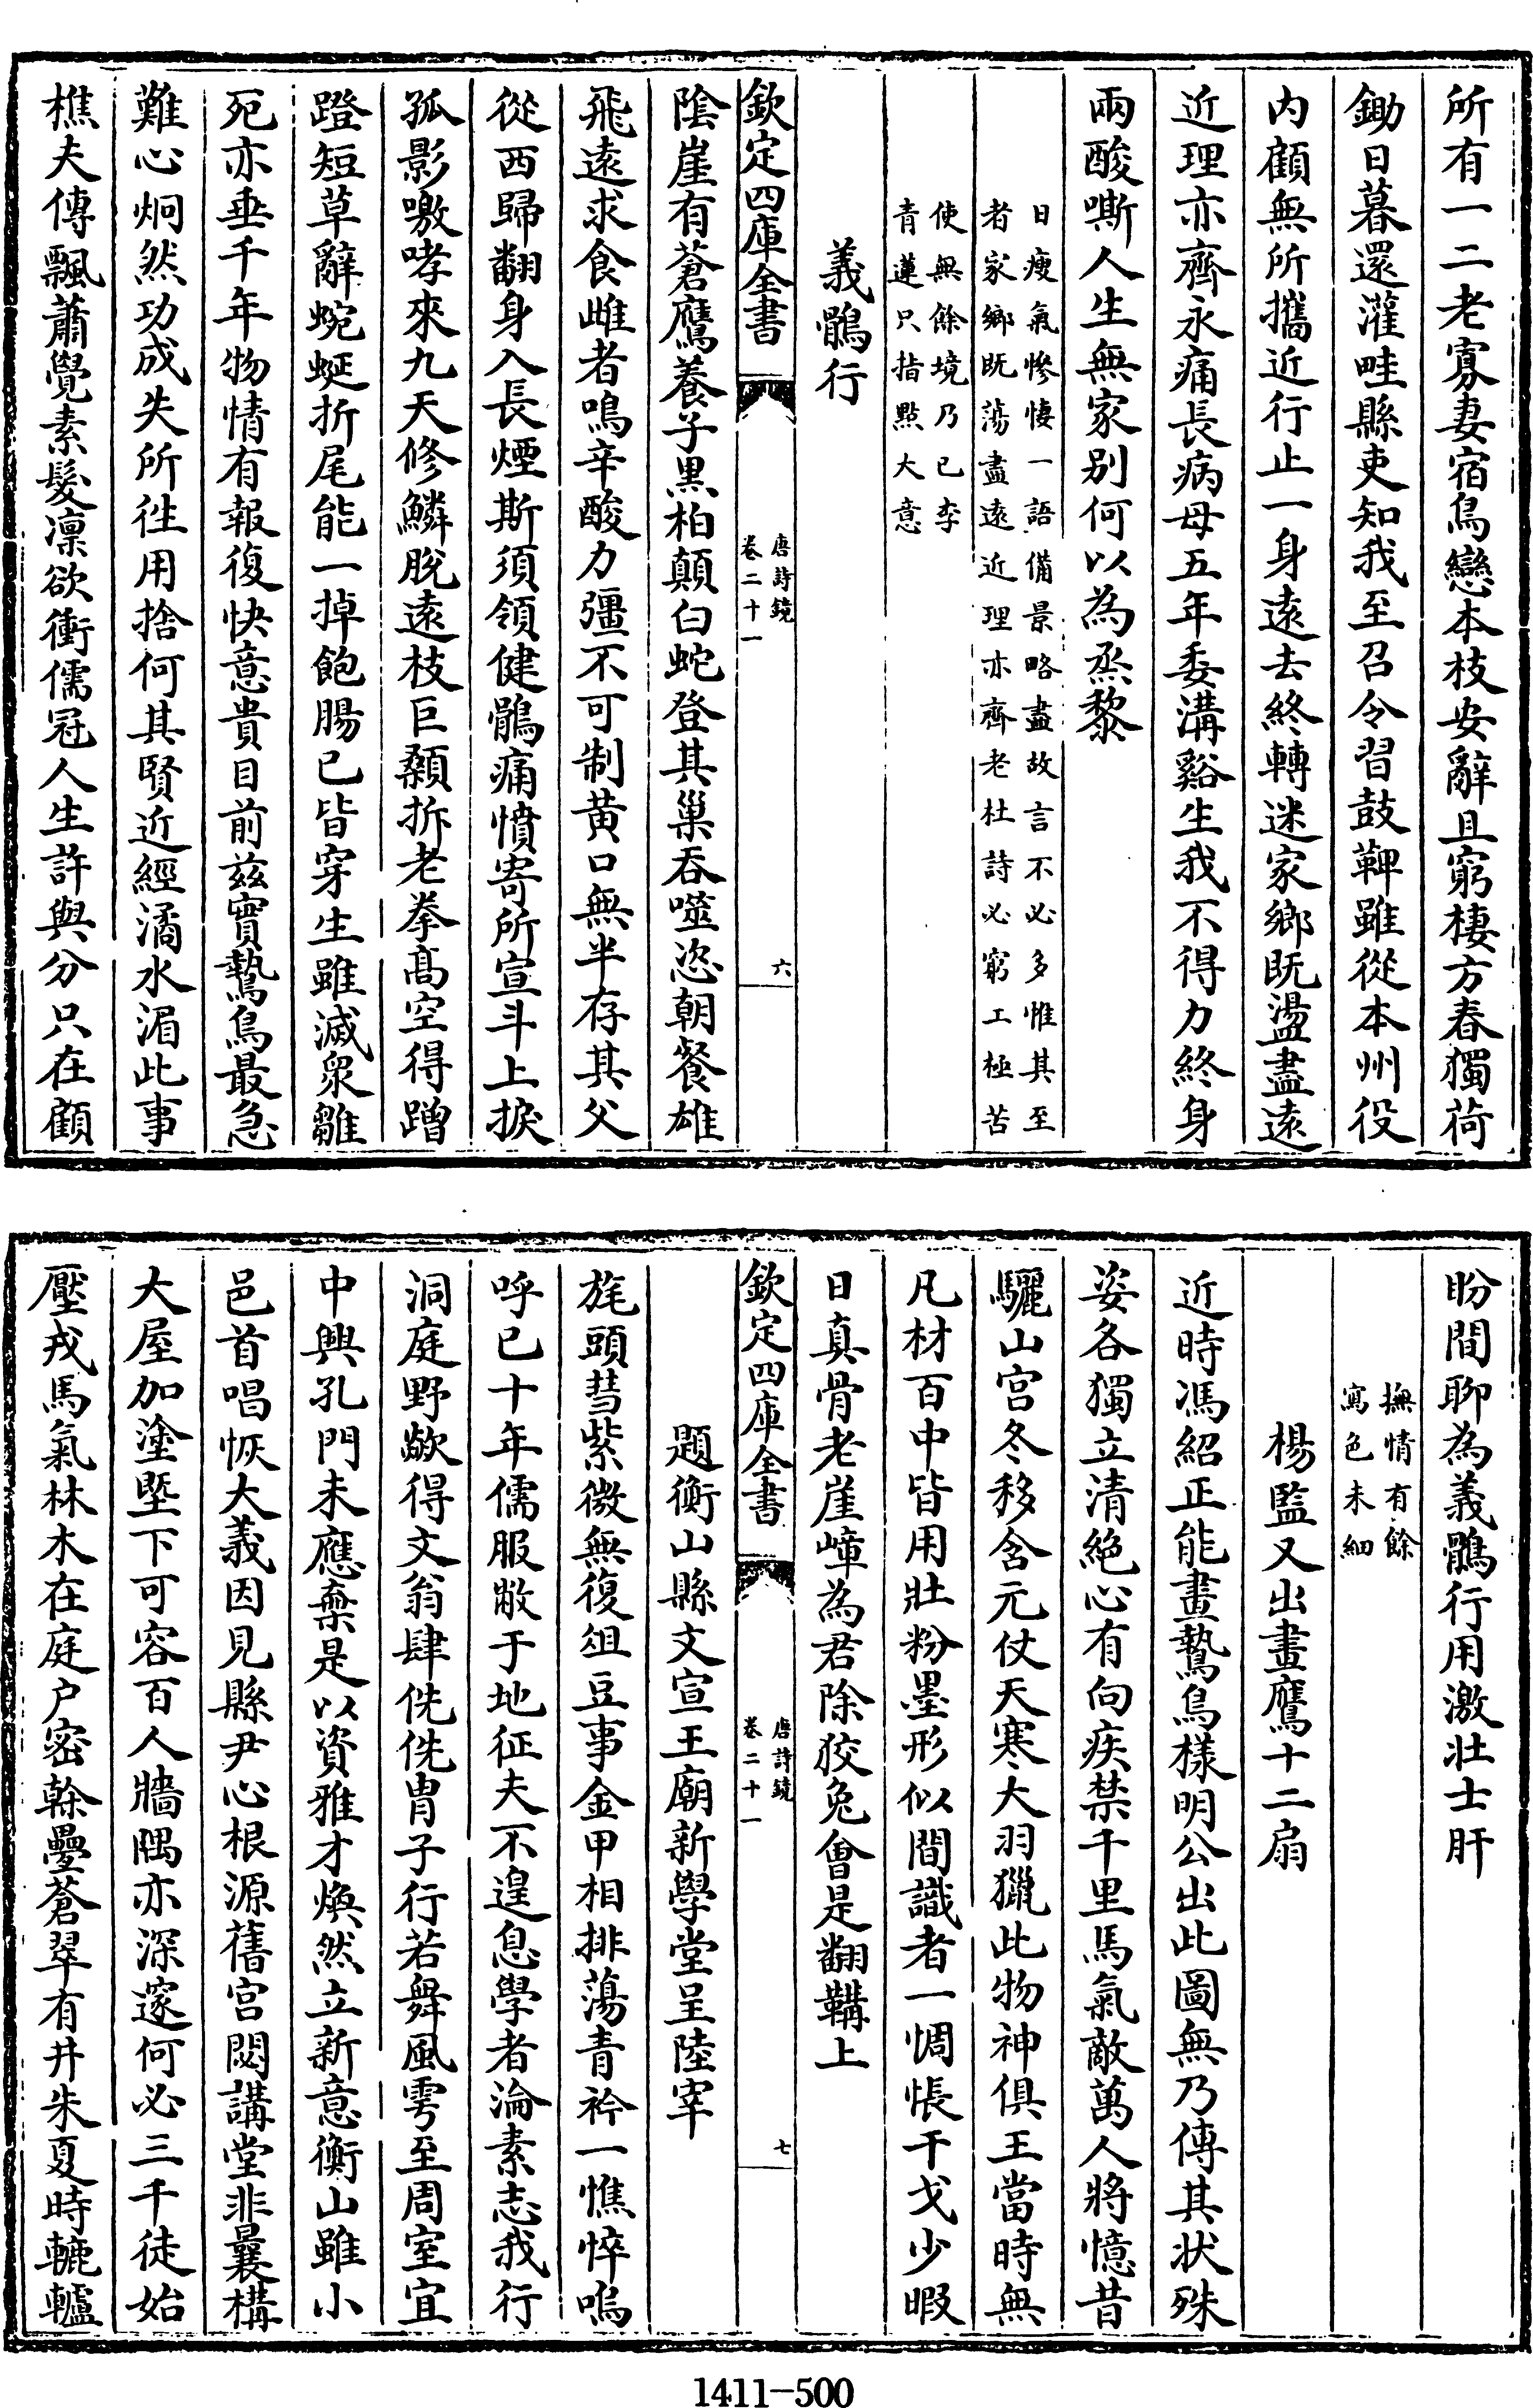 所有一二老寡妻宿鳥戀本枝安辭且窮棲方春獨荷
鋤日暮還灌畦縣吏知我至召令習鼓鞞雖從本州役
内顧無所攜近行止一身遠去終轉迷家鄉既盪盡遠
近理亦齊永痛長病母五年委溝谿生我不得力終身
兩酸嘶人生無家别何以為烝黎
日瘦氣慘悽一語備景略盡故言不必多惟其至
者家鄉既蕩盡遠近理亦齊老杜詩必窮工極苦
使無餘境乃已李
青蓮只指點大意
義鶻行
欽定四庫全書
唐詩鏡
卷二十一
六
陰崖有蒼鷹養子黑柏顛白蛇登其巢吞噬恣朝餐雄
飛遠求食雌者鳴辛酸力彊不可制黄口無半存其父
從西歸翻身入長煙斯須領健鶻痛憤寄所宣斗上捩
孤影噭哮來九天修鱗脫遠枝巨顙拆老拳髙空得蹭
蹬短草辭蜿蜒折尾能一掉飽腸已皆穿生雖滅衆雛
死亦垂千年物情有報復快意貴目前兹實鷙鳥最急
難心炯然功成失所往用捨何其賢近經潏水湄此事
樵夫傳飄蕭覺素髮凛欲衝儒冠人生許與分只在顧
盼間聊為義鶻行用激壯士肝
撫情有餘
寫色未細
楊監又出畫鷹十二扇
近時馮紹正能畫鷙鳥樣明公出此圖無乃傳其状殊
姿各獨立清絶心有向疾禁千里馬氣敵萬人將憶昔
驪山宫冬移含元仗天寒大羽獵此物神俱王當時無
凡材百中皆用壯粉墨形似間識者一惆悵干戈少暇
日真骨老崖嶂為君除狡兔會是翻鞲上
欽定四庫全書
唐詩鏡
卷二十一
七
題衡山縣文宣王廟新學堂呈陸宰
旄頭彗紫微無復俎豆事金甲相排蕩青衿一憔悴嗚
呼已十年儒服敝于地征夫不遑息學者淪素志我行
洞庭野歘得文翁肆侁侁胄子行若舞風雩至周室宜
中興孔門未應棄是以資雅才煥然立新意衡山雖小
邑首唱恢大義因見縣尹心根源舊宫閟講堂非曩構
大屋加塗塈下可容百人牆隅亦深邃何必三千徒始
壓戎馬氣林木在庭户密榦疊蒼翠有井朱夏時轆轤
1411-500